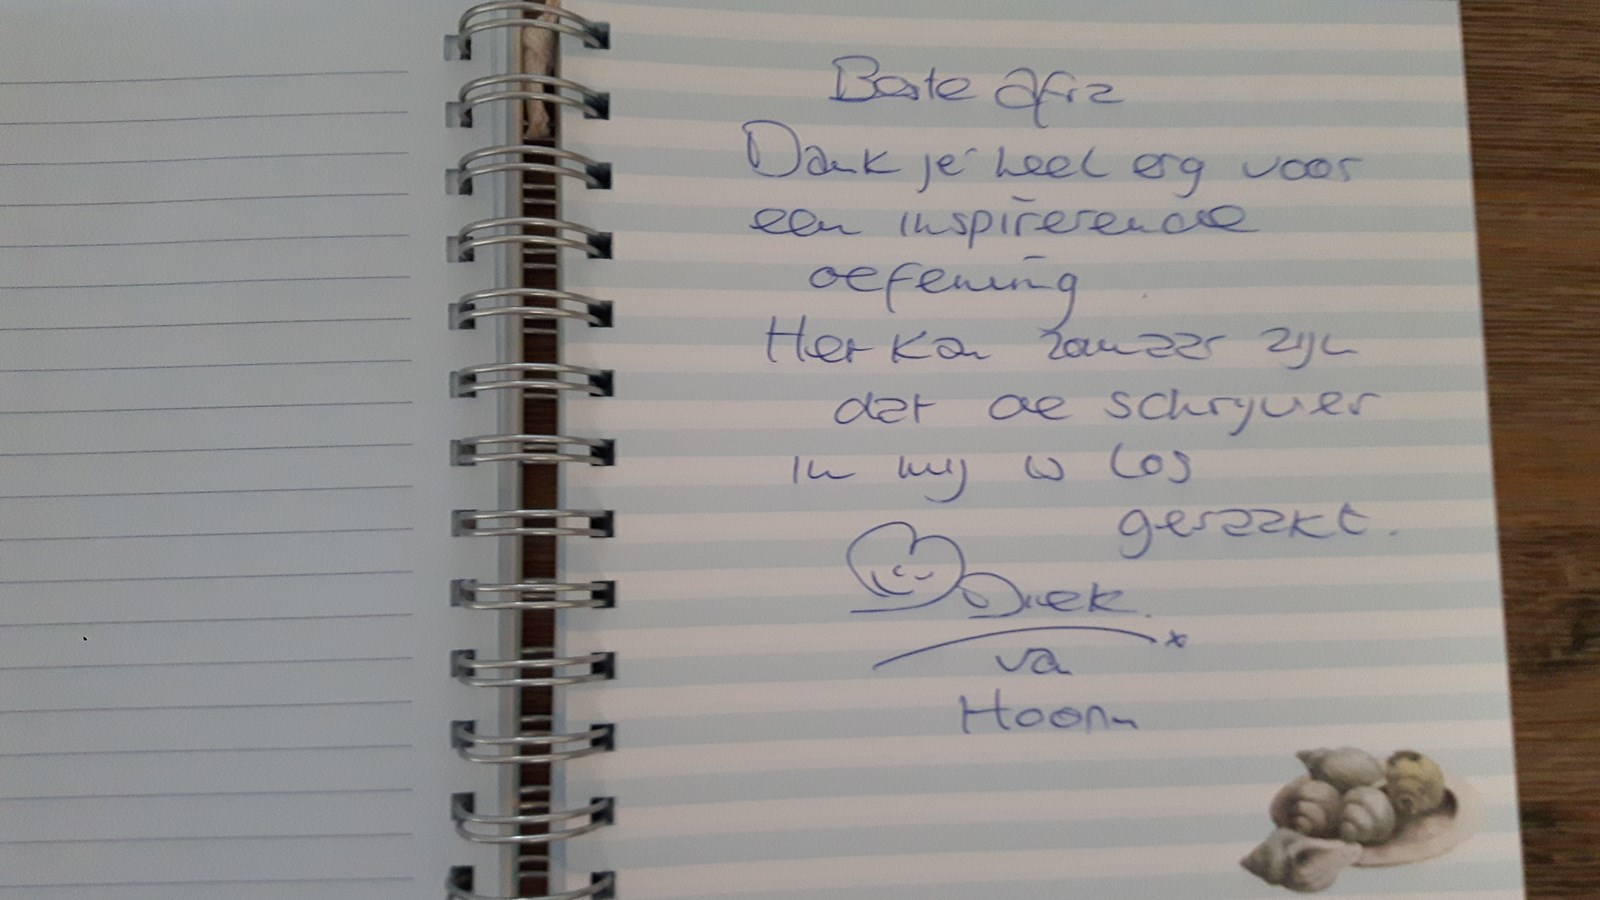 Beste Afra
Dank je heel erg voor
een inspirerende
oefening
Het kan zomaar zijn
dat de schrijver
in mij is los
geraakt.
va
Hoorn